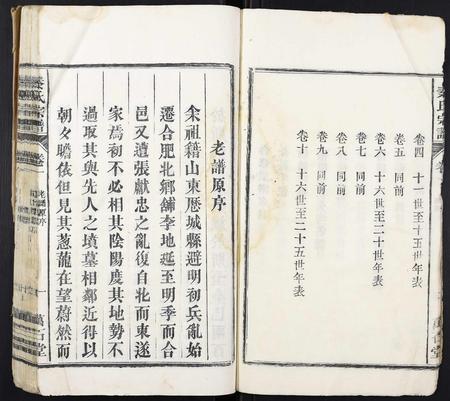 卷四 十一世至十五世年表
卷五 同前
卷六 十六世至二十世年表
卷七 同前
卷八 同前
卷九 同前
卷十 十六世至二十五世年表
老譜原序
余祖籍山東歷城縣避明初兵亂始
遷合肥北鄉舖李地延至明季而合
邑又遭張獻忠之亂復自北而東遂
家焉初不必相其陰陽度其地勢不
過取其與先人之墳墓相鄰近得以
朝夕瞻依但見其葱蘢在望蔚然而
氏宗譜
卷
老譜原序
一
萬古堂